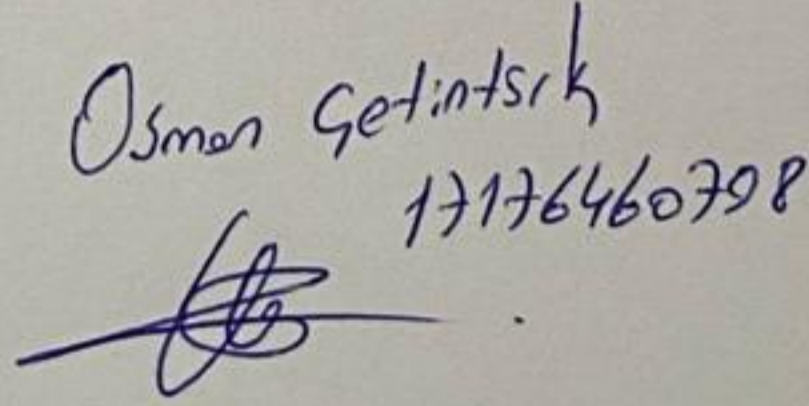 Osman Çetintaık
17176460798